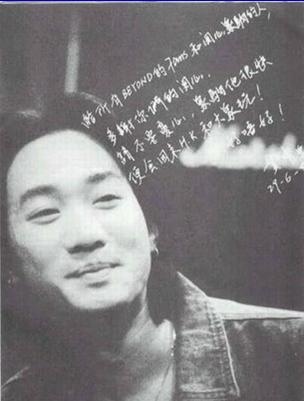 給所有BEYOND的Fans和關心家駒的人,
多謝你們的關心..
請不要哀心.. 家駒他很快
便會回來H.K和大家玩!
29-6-